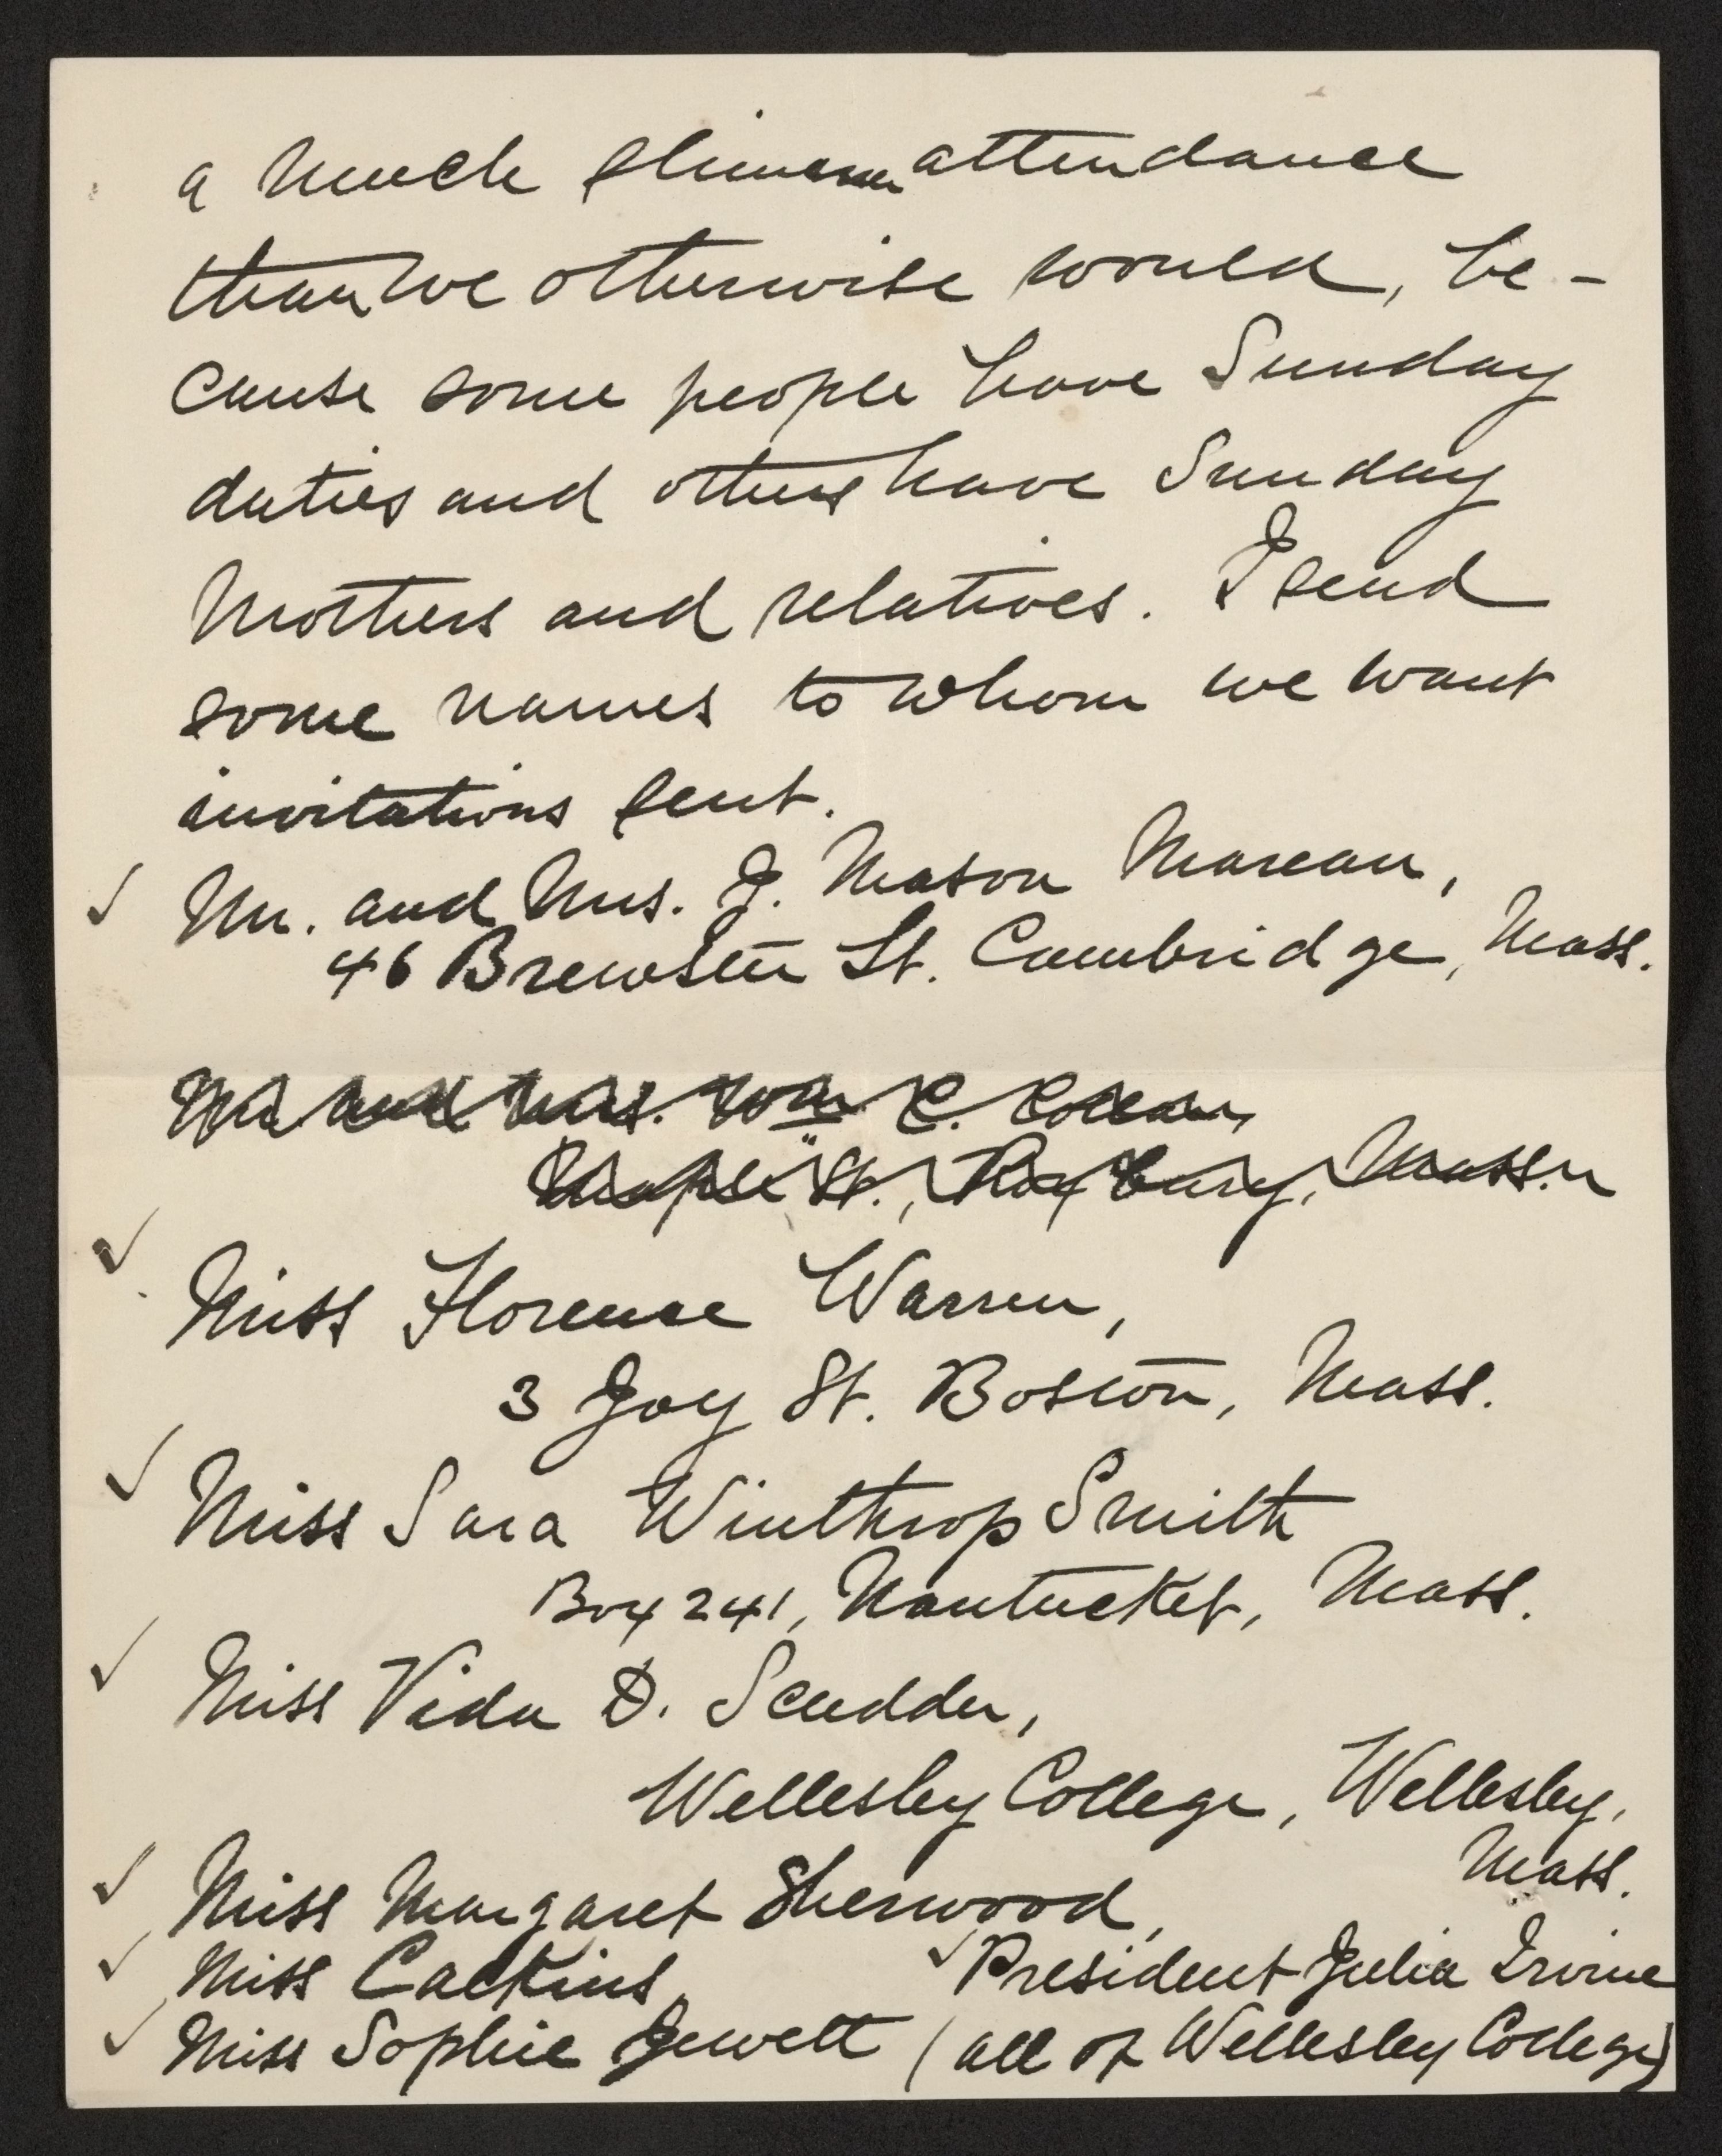 a much slimmer attendance
than we otherwise would, be-
cause some people have Sunday
duties and others have Sunday
Mothers and relatives. I send
some names to whom we want
invitations sent.
✓ Mr. and Mrs. J. Mason Mareau,
46 Brewster St. Cambridge, Mass.
Mr and Mrs. Wm. C.
Maple St., Roxbury, Mass.
✓ Miss Florence Warren,
3 Joy St. Boston, Mass.
✓ Miss Sara Winthrop Smith
Box 241, Nantucket, Mass.
✓ Miss Vida D. Scudder,
Wellesley College, Wellesley,
Mass.
✓ Miss Margaret Sherwood,
✓ Miss Calkins, ✓ President Julia Irvine
✓ Miss Sophie Jewett (all of Wellesley College)